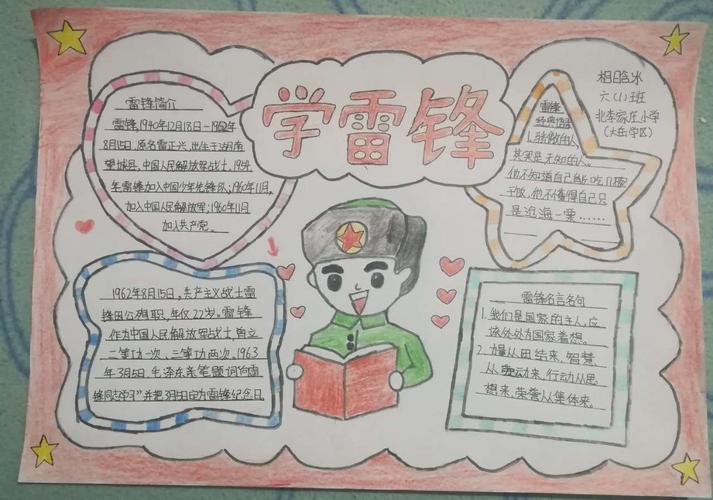 学雷锋
雷锋简介
雷锋,1940年12月18日-1962年
8月15日,原名雷正兴,出生于湖南
望城县,中国人民解放军战士,1954
年雷锋加入中国少年先锋队;1960年11月
加入中国人民解放军;1960年11月
加入共产党。
相晗冰
六(1)班
北李家庄小学
(大岳学区)
雷锋
经典语录
1.骄傲的人,
其实是无知的人。
他不知道自己能吃几碗
干饭,他不懂得自己只
是沧海一粟……
1962年8月15日,共产主义战士雷
锋因公殉职,年仅22岁。雷锋
作为中国人民解放军战士,荣立
二等功一次、三等功两次。1963
年3月5日,毛泽东亲笔题词“向雷
锋同志学习”并把3月5日定为雷锋纪念日。
雷锋名言名句
1.我们是国家的主人,应
该处处为国家着想。
2.力量从团结来,智慧
从劳动来,行动从思
想来,荣誉从集体来。